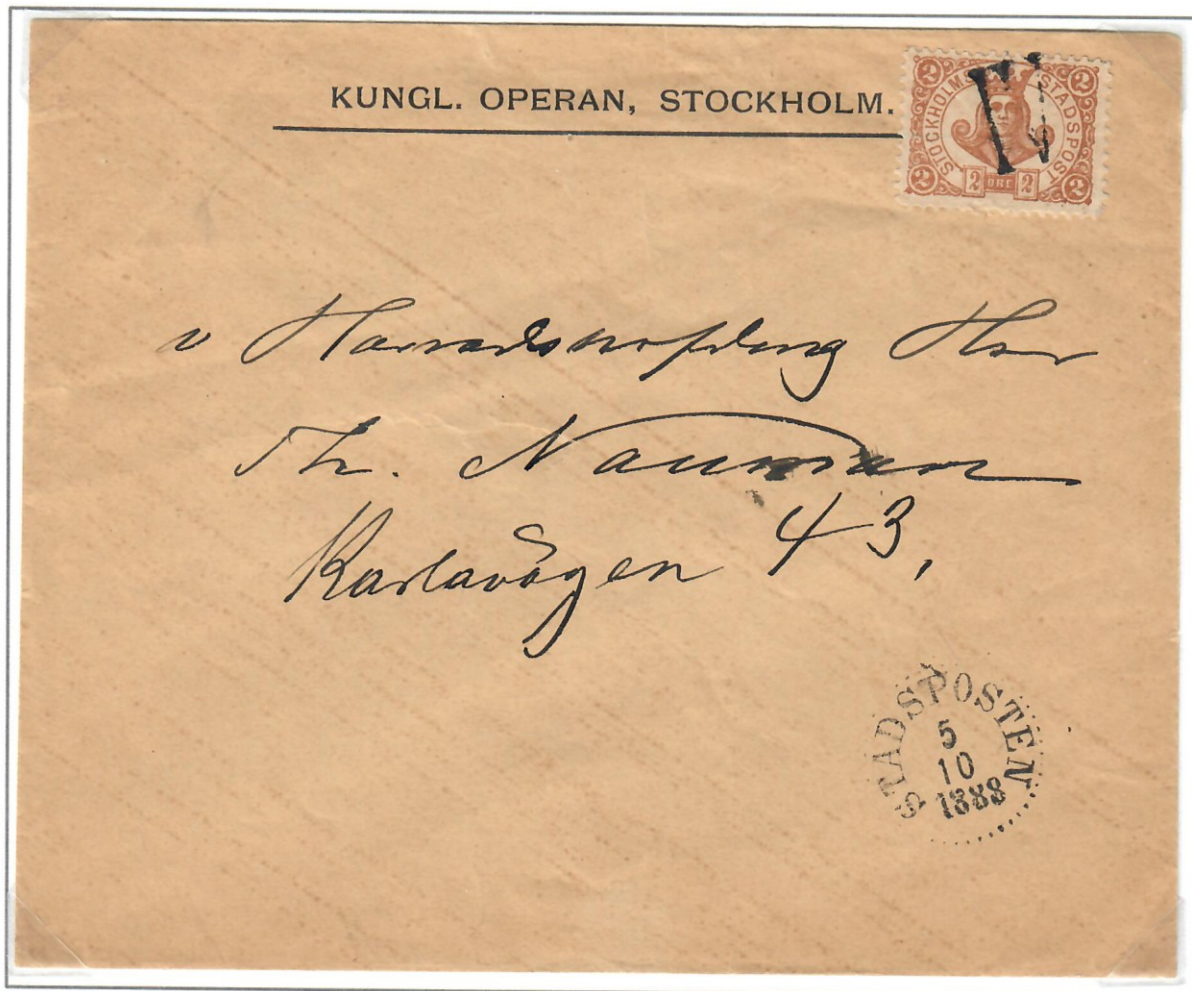 KUNGL. OPERAN, STOCKHOLM.
STOCKHOLMS STADSPOST
2 2
2 2
2 ÖRE 2
v Häradshöfding Herr
Th. Nauman
Karlavägen 43,
STADSPOSTEN
5
10
1888